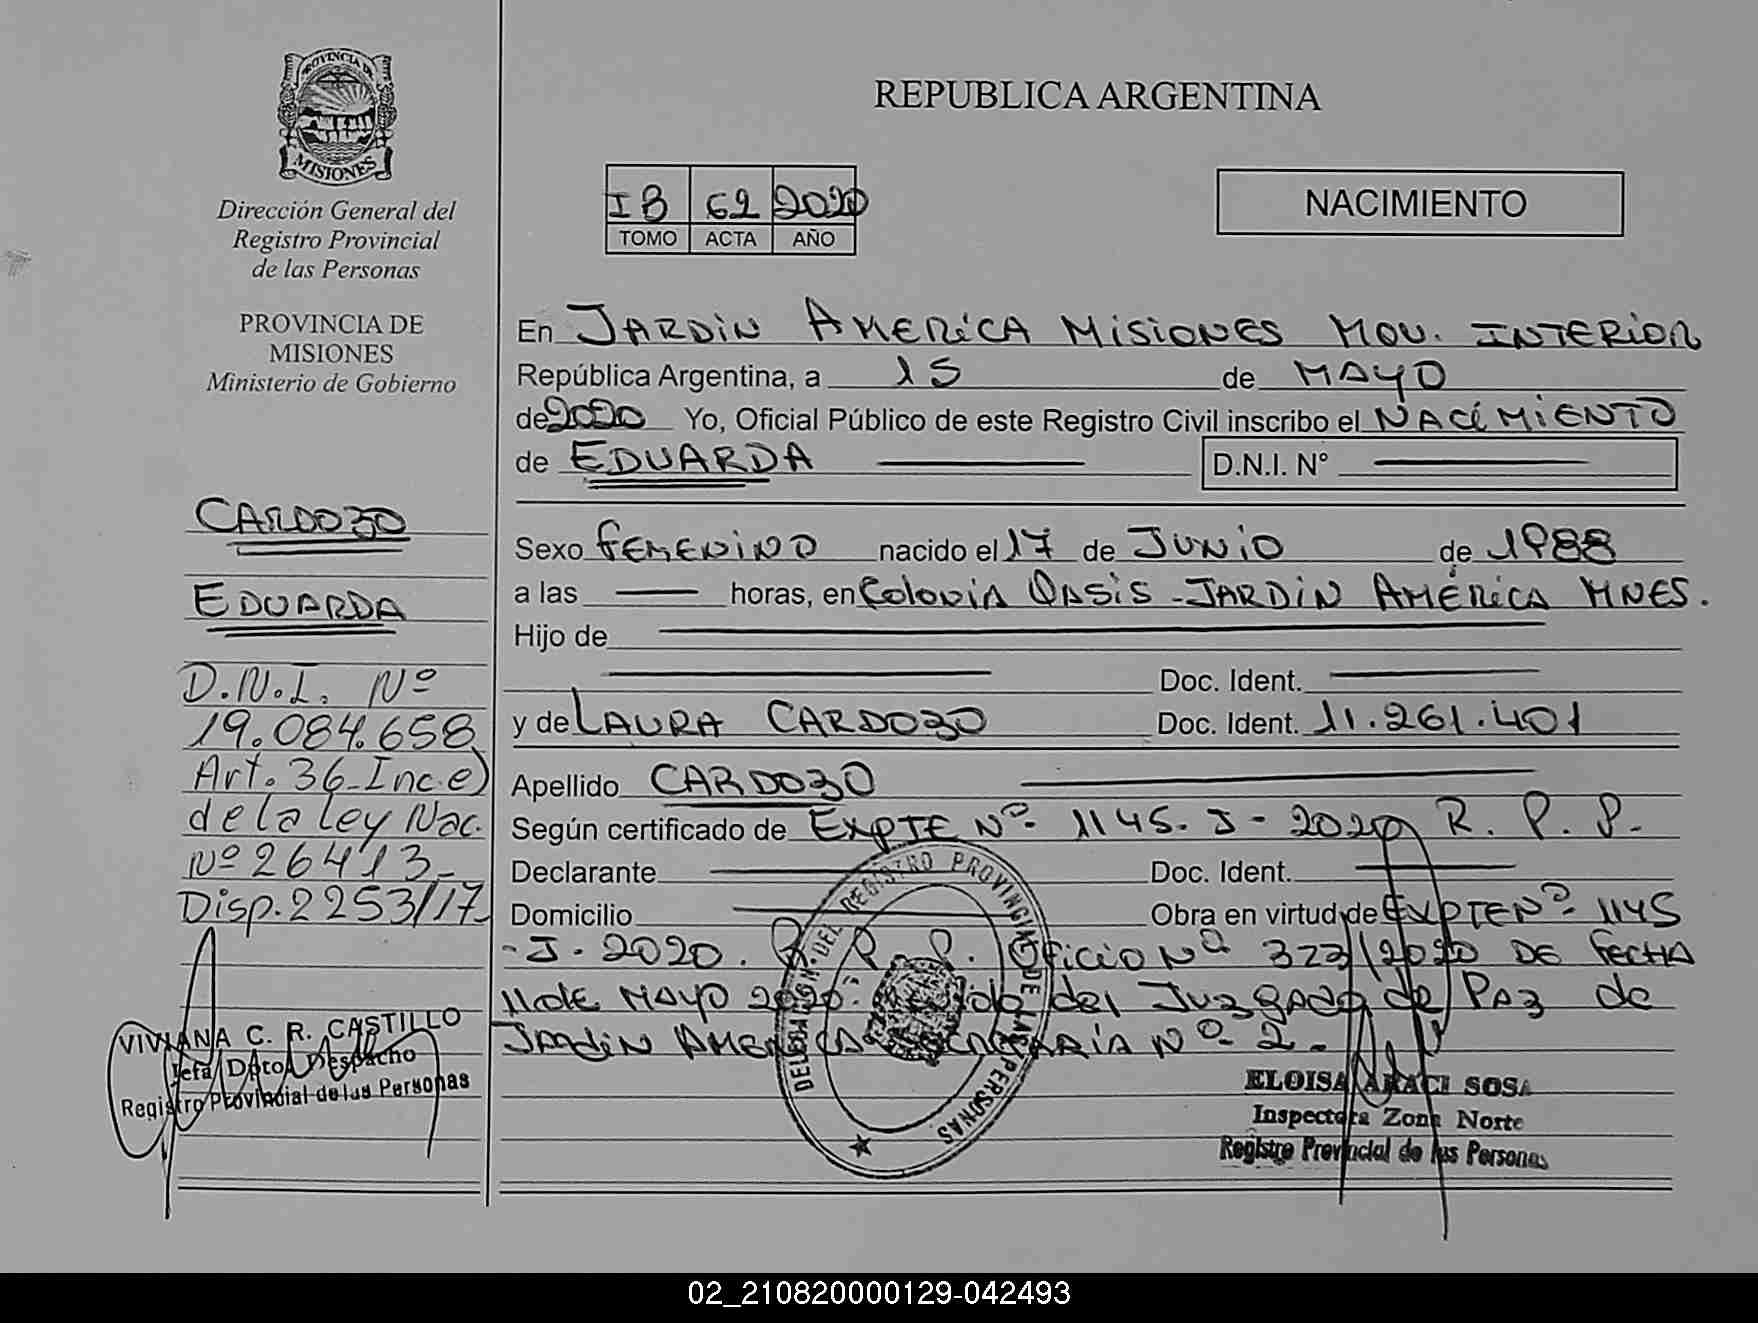 PROVINCIA DE
MISIONES
Dirección General del
Registro Provincial
de las Personas
PROVINCIA DE
MISIONES
Ministerio de Gobierno
CARDOZO
EDUARDA
D.N.I. Nº
19.084.658
Art. 36 Inc. e)
de la ley Nac.
Nº 26413-
Disp. 2253/17.
VIVIANA C. R. CASTILLO
Jefa Dpto. Despacho
Registro Provincial de las Personas
REPUBLICA ARGENTINA
IB 62 2020
TOMO ACTA AÑO
NACIMIENTO
En JARDIN AMERICA MISIONES MOV. INTERIOR
República Argentina, a 15 de MAYO
de 2020 Yo, Oficial Público de este Registro Civil inscribo el NACIMIENTO
de EDUARDA D.N.I. N°
Sexo FEMENINO nacido el 17 de JUNIO de 1988
a las horas, en Colonia Oasis - JARDIN AMÉRICA MNES.
Hijo de
Doc. Ident.
y de LAURA CARDOZO Doc. Ident. 11.261.401
Apellido CARDOZO
Según certificado de EXPTE Nº 1145. J - 2020 R. P. P.
Declarante Doc. Ident.
Domicilio Obra en virtud de EXPTE Nº 1145
-J-2020. R. R. P. Oficio Nº 323/2020 DE FECHA
11 de MAYO 2020. del Juzgado de Paz de
Jardin America Nº 2-
DELEGACION DEL REGISTRO PROVINCIAL DE LAS PERSONAS
ELOISA ARACI SOSA
Inspectora Zona Norte
Registro Provincial de las Personas
02_210820000129-042493